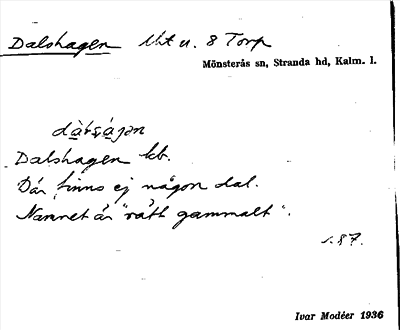 Dalshagen Uht u. 8 Torp
Mönsterås sn, Stranda hd, Kalm. l.
Dalshagen kb.
Där finns ej någon dal.
Namnet är "rätt gammalt".
s. 87.
Ivar Modéer 1936